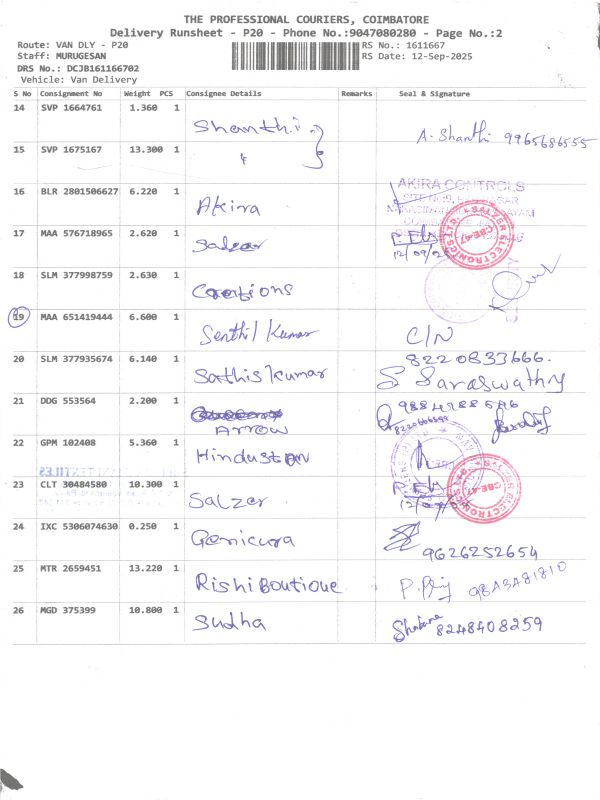 THE PROFESSIONAL COURIERS, COIMBATORE
Delivery Runsheet - P20 - Phone No.:9047080280 - Page No.:2
Route: VAN DLY - P20
RS No.: 1611667
Staff: MURUGESAN
RS Date: 12-Sep-2025
DRS No.: DCJB161166702
Vehicle: Van Delivery
S No Consignment No Weight PCS Consignee Details Remarks Seal & Signature
14 SVP 1664761 1.360 1 Shanthi A. Shanthi 9965686555
15 SVP 1675167 13.300 1
16 BLR 2801506627 6.220 1 Akira AKIRA CONTROLS
17 MAA 576718965 2.620 1 Salzer SALZER ELECTRONICS LTD. CBE-47
18 SLM 377998759 2.630 1 Creations
19 MAA 651419444 6.600 1 Senthil Kumar C/N
20 SLM 377935674 6.140 1 Sathis Kumar 8220833666.
S Saraswathy
21 DDG 553564 2.200 1 ARROW
22 GPM 102408 5.360 1 Hindustan
23 CLT 30484580 10.300 1 Salzer SALZER ELECTRONICS LTD. CBE-47
24 IXC 5306074630 0.250 1 Genicura 9626252654
25 MTR 2659451 13.220 1 Rishi Boutique
26 MGD 375399 10.800 1 Sudha 8248408259